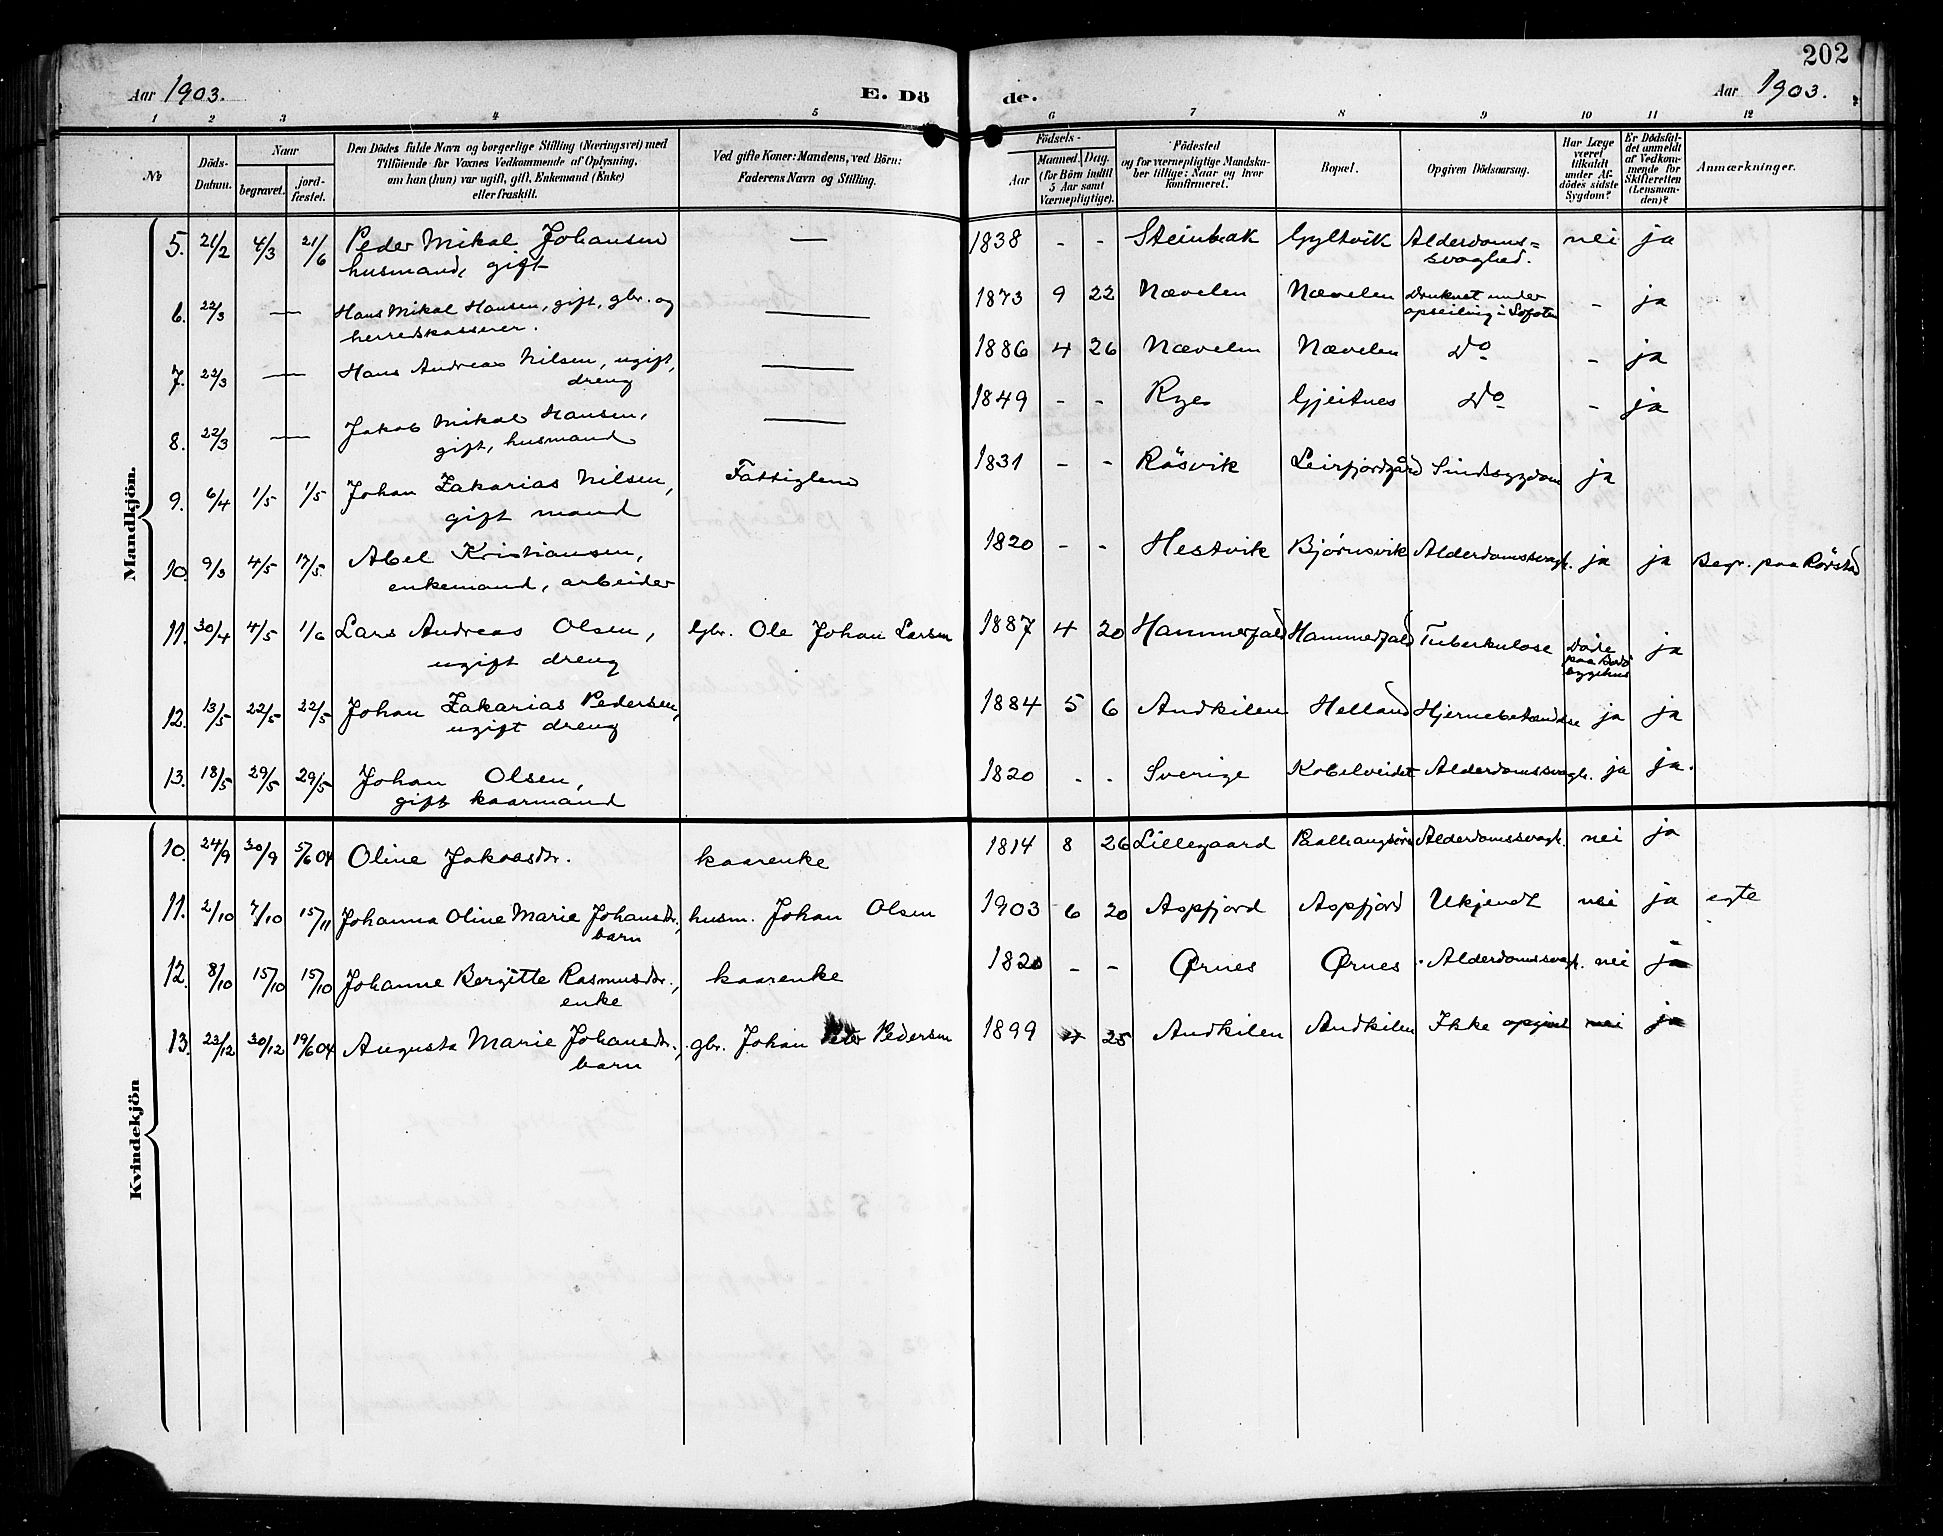 202
Aar 1903. E. Dö de. Aar 1903.
1 2 3 4 5 6 7 8 9 10 11 12
№
Döds-Datum.
Naar
begravet.
jord-fæstet.
Den Dödes fulde Navn og borgerlige Stilling (Næringsvei) med
Tilföiende for Voxnes Vedkommende af Oplysning,
om han (hun) var ugift, gift, Enkemand (Enke)
eller fraskilt.
Ved gifte Koner: Mandens, ved Börn:
Faderens Navn og Stilling.
Födsels-
Aar
Maaned. Dag.
(for Börn indtil
5 Aar samt
Værnepligtige).
Födested
og for værnepligtige Mandska-
ber tillige: Naar og hvor
konfirmeret.
Bopæl.
Opgiven Dödsaarsag.
Har Læge
været
tilkaldt
under Af-
dödes sidste
Sygdom?
Er Dödsfal-
det anmeldt
af Vedkom-
mende for
Skifteretten
(Lensman-
den)?
Anmærkninger.
Mandkjön.
5. 21/2 4/3 21/6 Peder Mikal Johansen — 1838 - - Steinbak Gyltvik Alderdoms= nei ja
husmand, gift svaghed.
6. 22/3 — Hans Mikal Hansen, gift, gbr. og — 1873 9 22 Nævelen Nævelen Druknet under - ja
herredskasserer. opseiling i Lofoten
7. 22/3 — Hans Andreas Nilsen, ugift, — 1886 4 26 Nævelen Nævelen Do - ja
dreng
8. 22/3 — Jakob Mikal Hansen, — 1849 - - Ryes Gjeitnes Do - ja
gift, husmand
9. 6/4 1/5 1/5 Johan Zakarias Nilsen, Fattiglem 1831 - - Røsvik Leirfjordgård Sindssygdom ja
gift mand
10. 9/3 4/5 17/5. Abel Kristiansen, 1820 - - Hestvik Bjørnsvik Alderdomssvagh. ja ja Begr. paa Rørstad
enkemand, arbeider
11. 30/4 4/5 1/6 Lars Andreas Olsen, Gbr. Ole Johan Larsen 1887 4 20 Hammerfald Hammerfald Tuberkulose Døde ja
ugift dreng paa Bodø
sygehus
12. 13/5 22/5 22/5 Johan Zakarias Pedersen, 1884 5 6 Andkilen Helland Hjernebetændelse ja ja
ugift dreng
13. 18/5 29/5 29/5 Johan Olsen, 1820 - - Sverige Kobelveidet Alderdomssvagh. ja ja.
gift kaarmand
Kvindekjön
10. 24/9 30/9 5/6 04 Oline Jakobsdr. kaarenke 1814 8 26 Lillegaard Alderdomssvagh. nei ja
11. 2/10 7/10 15/11 Johanna Oline Marie Johansdr., husm. Johan Olsen 1903 6 20 Aspfjord Aspfjord Ukjendt nei ja egte
barn
12. 8/10 15/10 15/10 Johanne Bergitte Rasmusdr., kaarenke 1820 - - Ørnes Ørnes Alderdomssvagh. nei ja
enke
13. 23/12 30/12 19/6 04 Augusta Marie Johansdr., gbr. Johan Peter Pedersen 1899 25 Andkilen Andkilen Ikke opgivet nei ja
barn